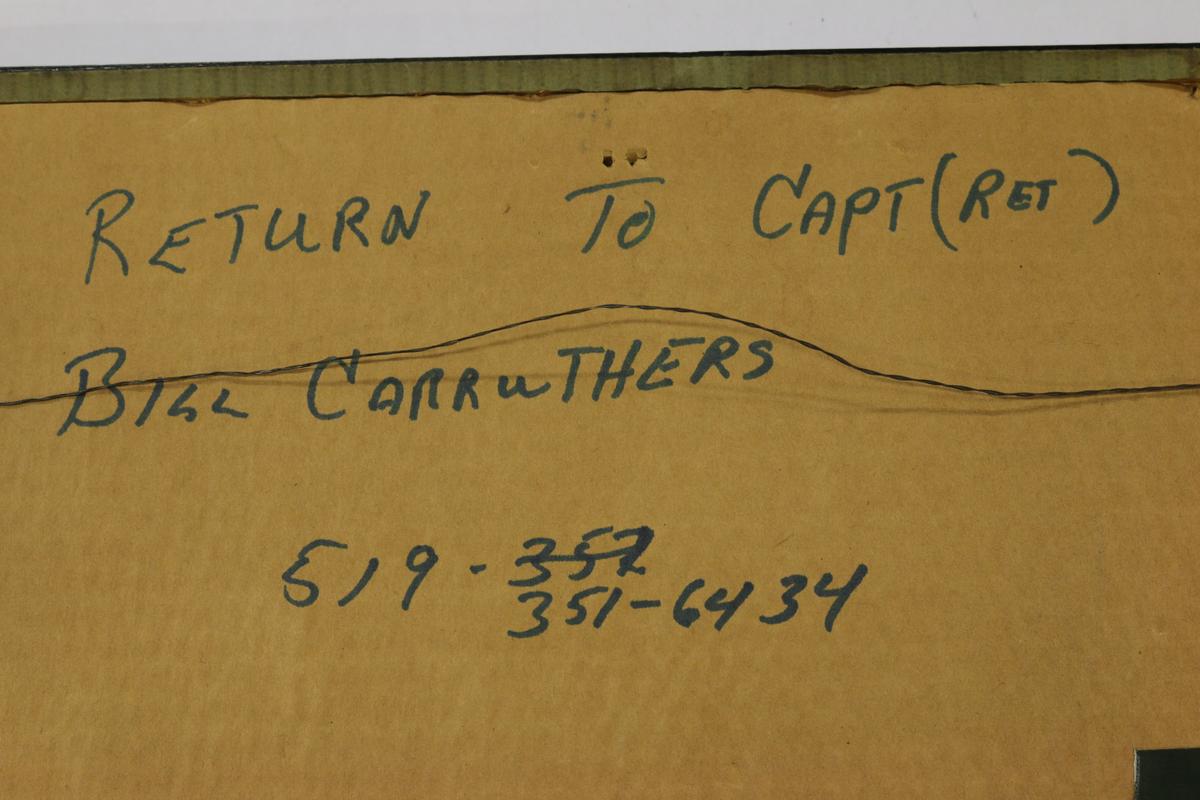 RETURN TO CAPT(RET)
BILL CARRUTHERS
519-352
351-6434